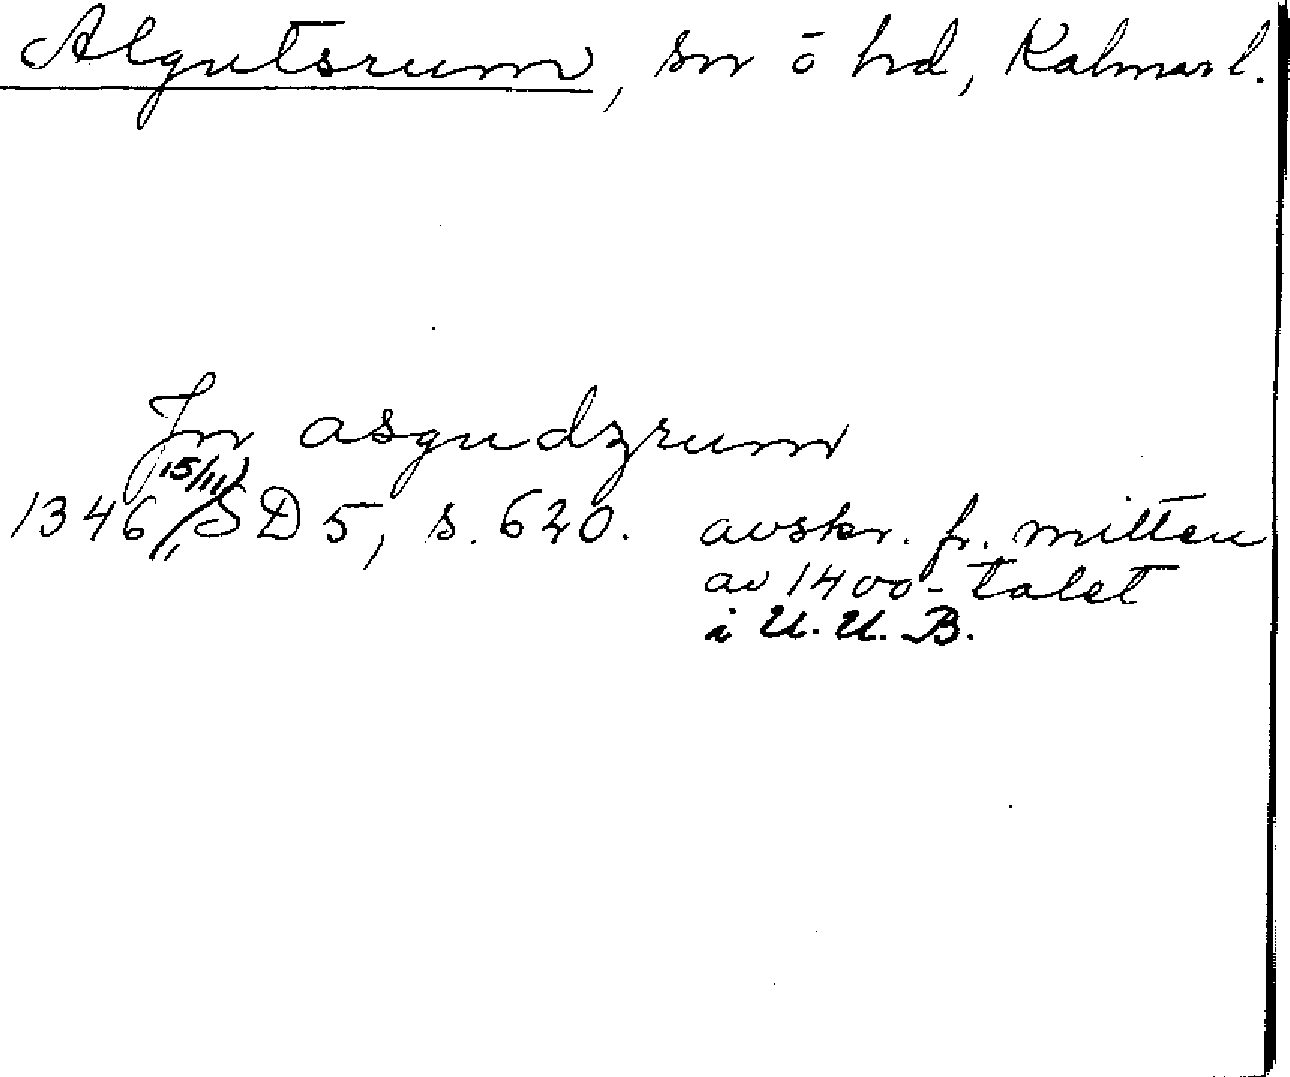 Algutsrum, sn o hd, Kalmar l.
In asgudzrum
15/11
1346, SD 5, s. 620. avskr. fr. mitten
av 1400-talet
i U.U.B.